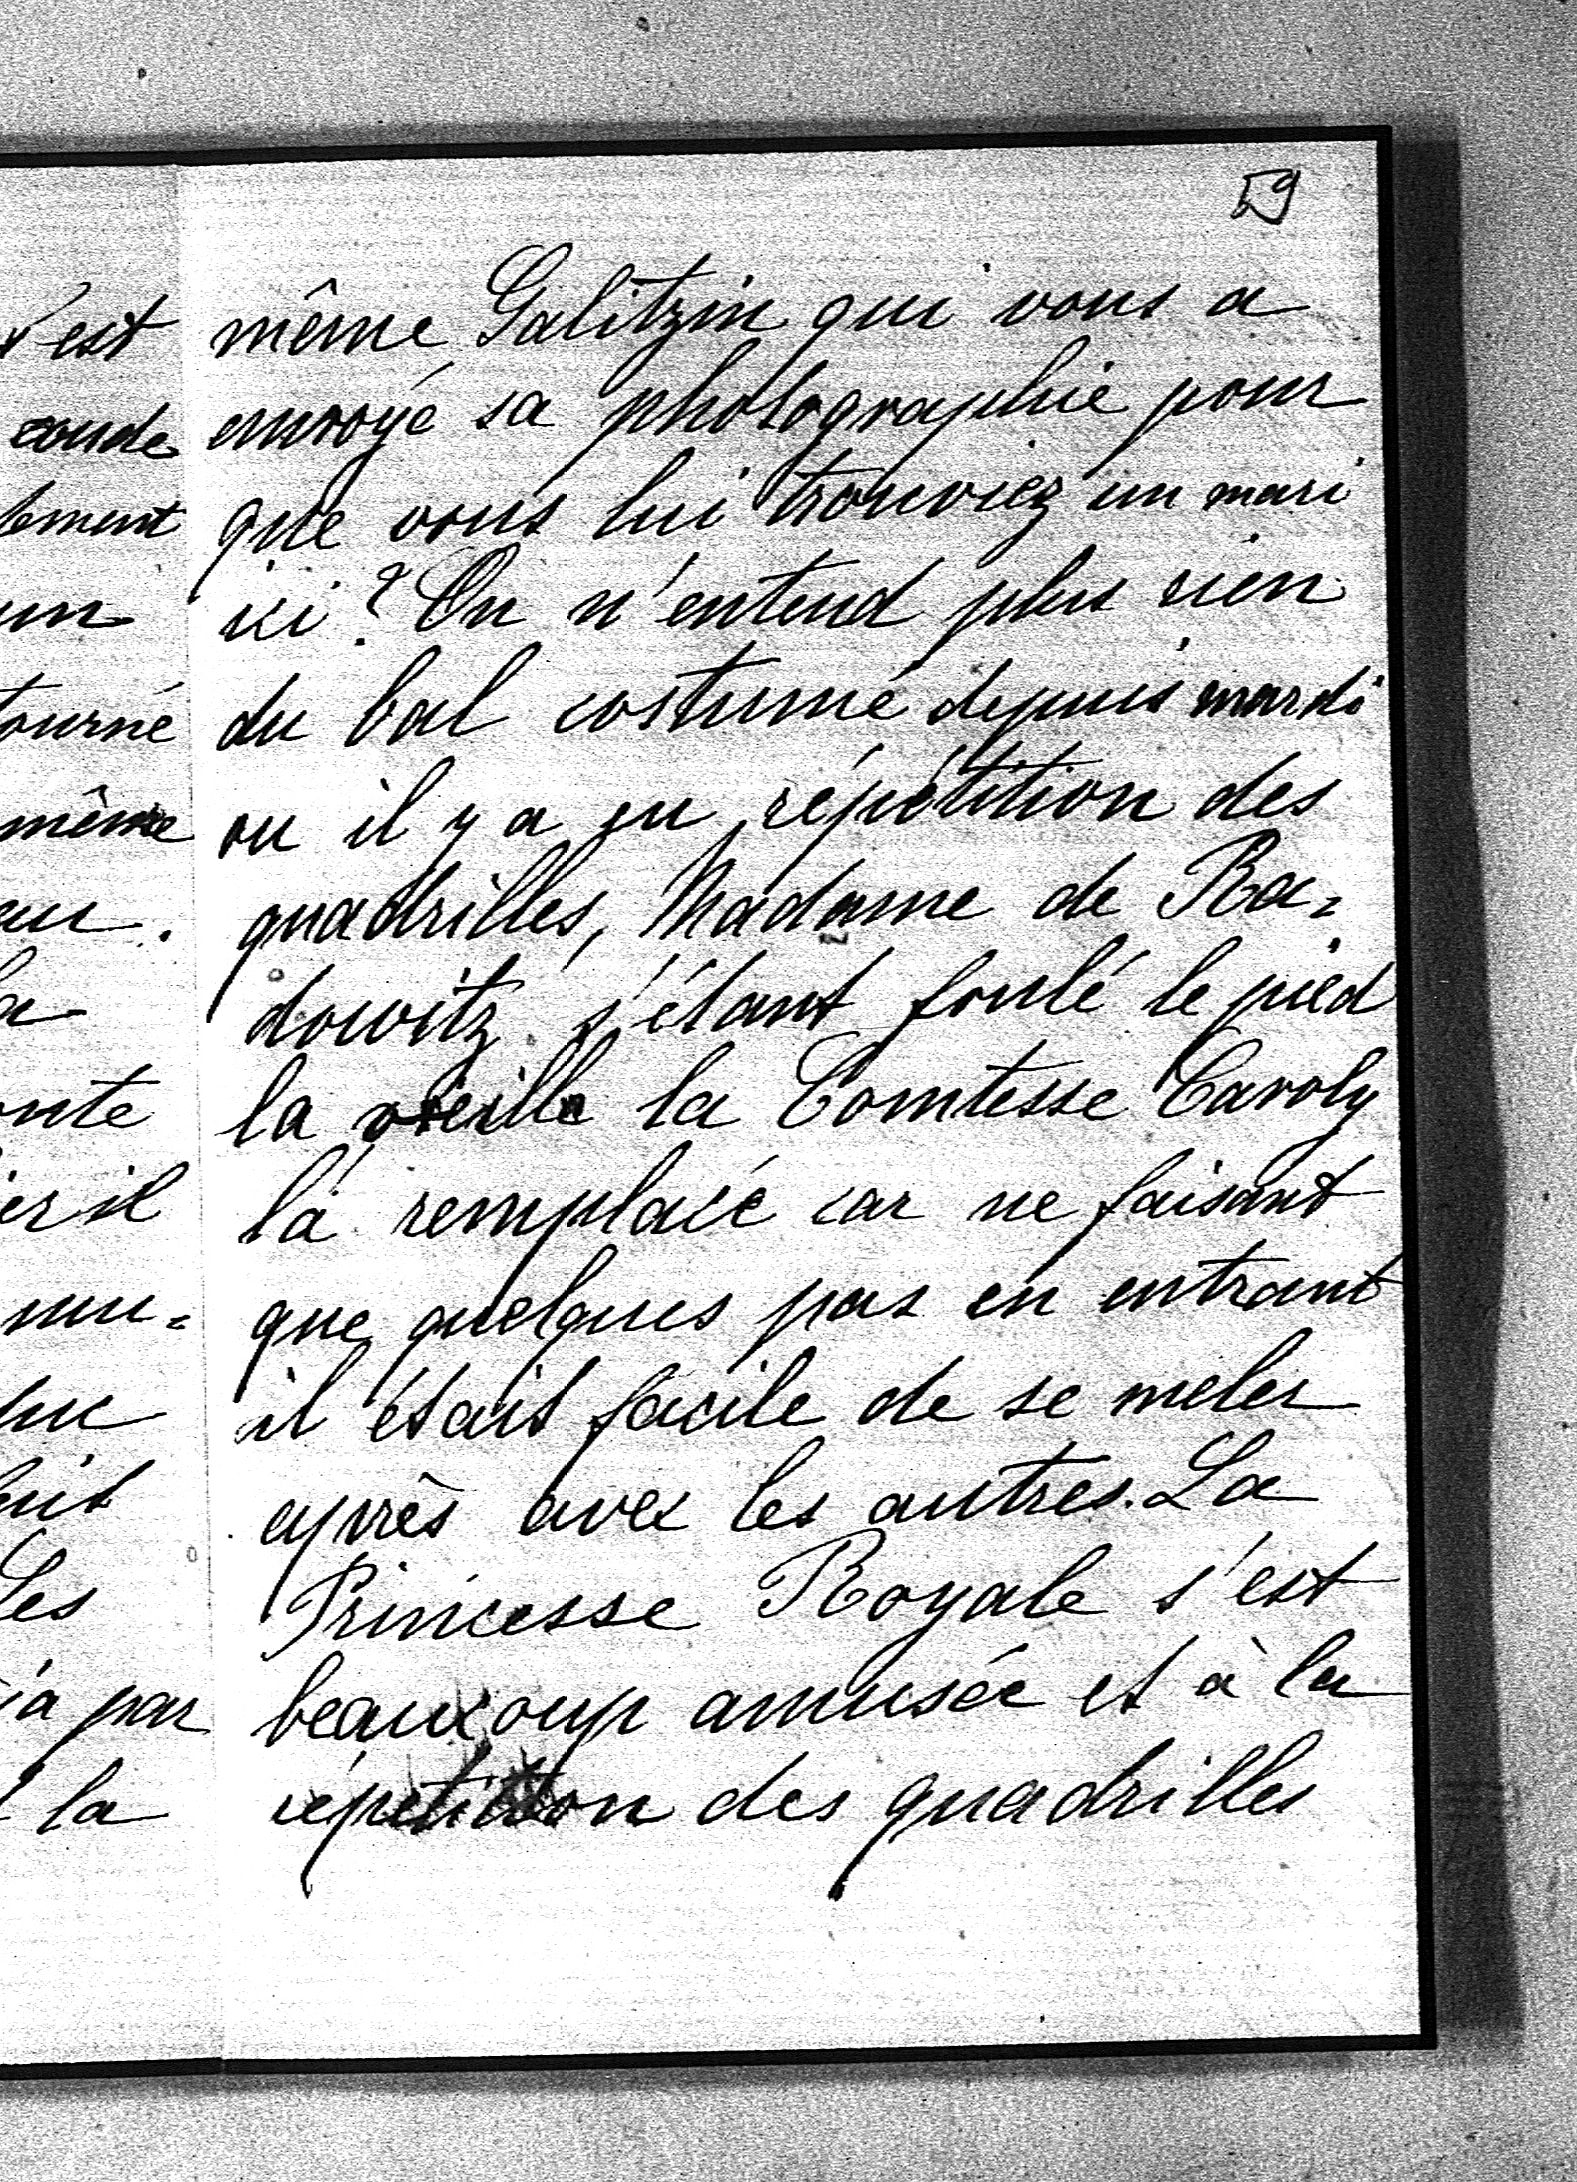 59
s'est
coude
lement
un
tourné
même
au.
la
onte
ier il
mu=
duc
suit
Les
à par
la
même Galitzin qui vous a
envoyé sa photographie pour
que vous lui trouviez un mari
ici? On n'entend plus rien
du bal costumé depuis mardi
ou il y a eu répétition des
quadrilles, Madame de Ra=
dowitz s'étant foulé le pied
la vieille la Comtesse Caroly
l'a remplacé car ne faisant
que quelques pas en entrant
il était facile de se meler
après avec les autres. La
Princesse Royale s'est
beaucoup amusée et à la
répetition des quadrilles